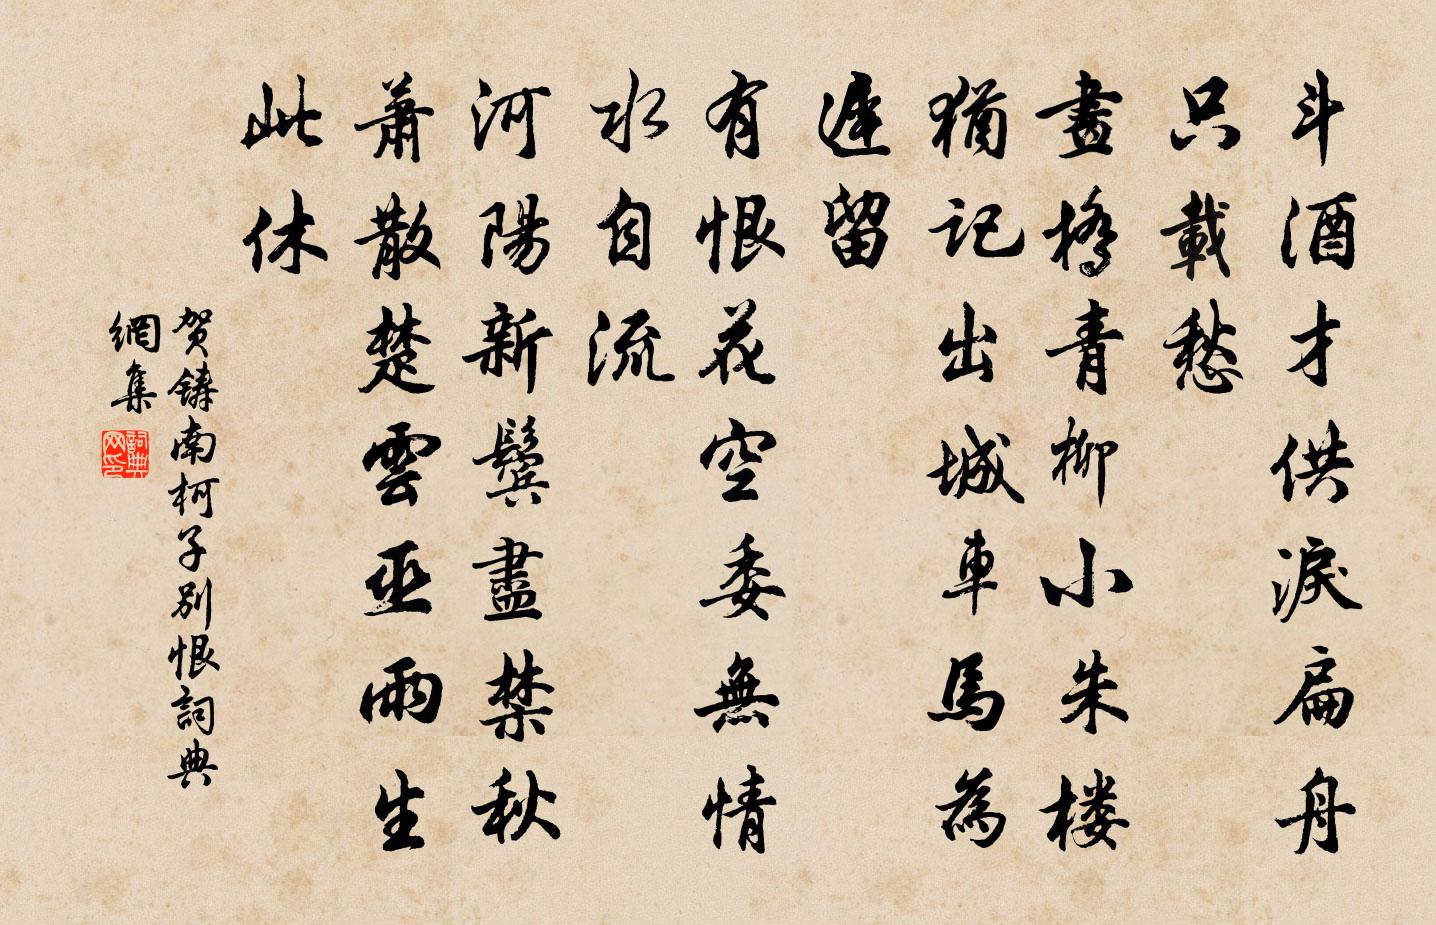 斗酒才供淚扁舟
只載愁
畫橋青柳小朱楼
猶記出城車馬為
遲留
有恨花空委無情
水自流
河陽新鬢盡禁秋
蕭散楚雲巫雨生
此休
贺鑄南柯子别恨詞典
網集
詞典
网印